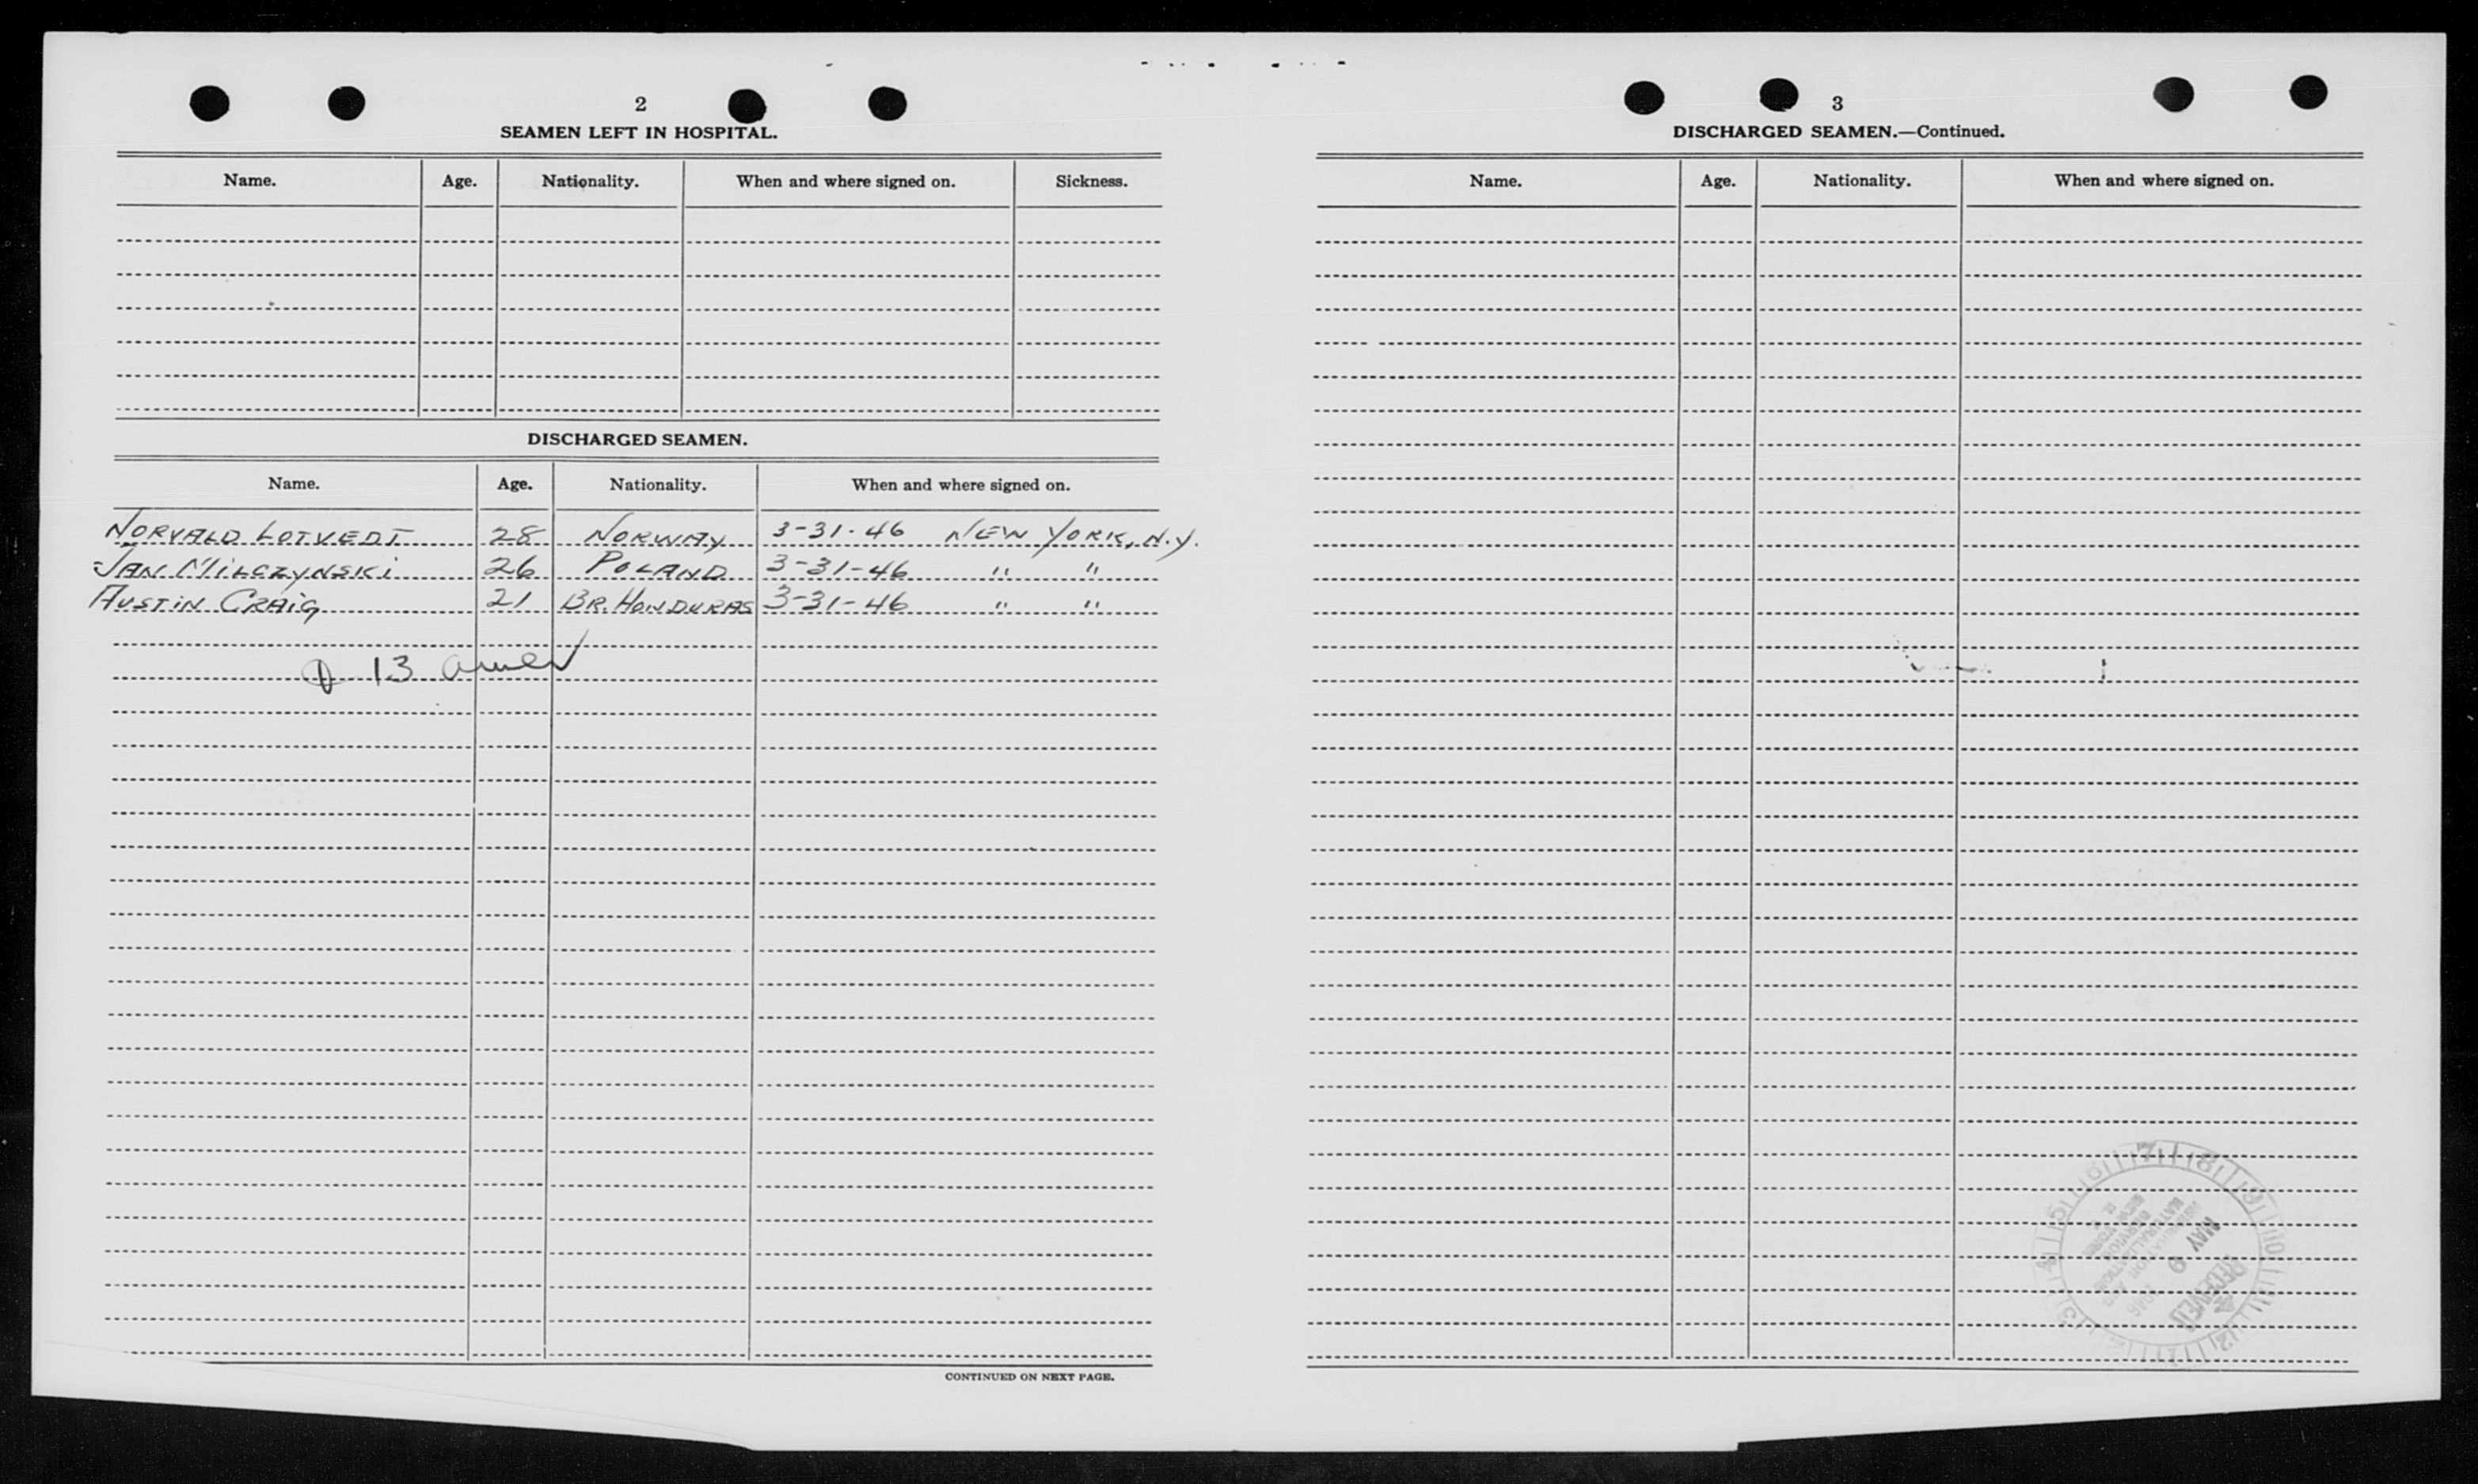 2
SEAMEN LEFT IN HOSPITAL.
Name. Age. Nationality. When and where signed on. Sickness.
DISCHARGED SEAMEN.
Name. Age. Nationality. When and where signed on.
NORVALD LOTVEDT 28 NORWAY 3-31-46 NEW YORK, N.Y.
JAN MILCZYNSKI 26 POLAND 3-31-46 " "
AUSTIN CRAIG 21 BR. HONDURAS 3-31-46 " "
13 amer
CONTINUED ON NEXT PAGE.
3
DISCHARGED SEAMEN.—Continued.
Name. Age. Nationality. When and where signed on.
RECEIVED
MAY 9
1946